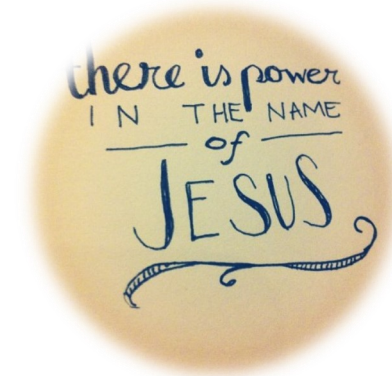 there is power
IN THE NAME
of
JESUS